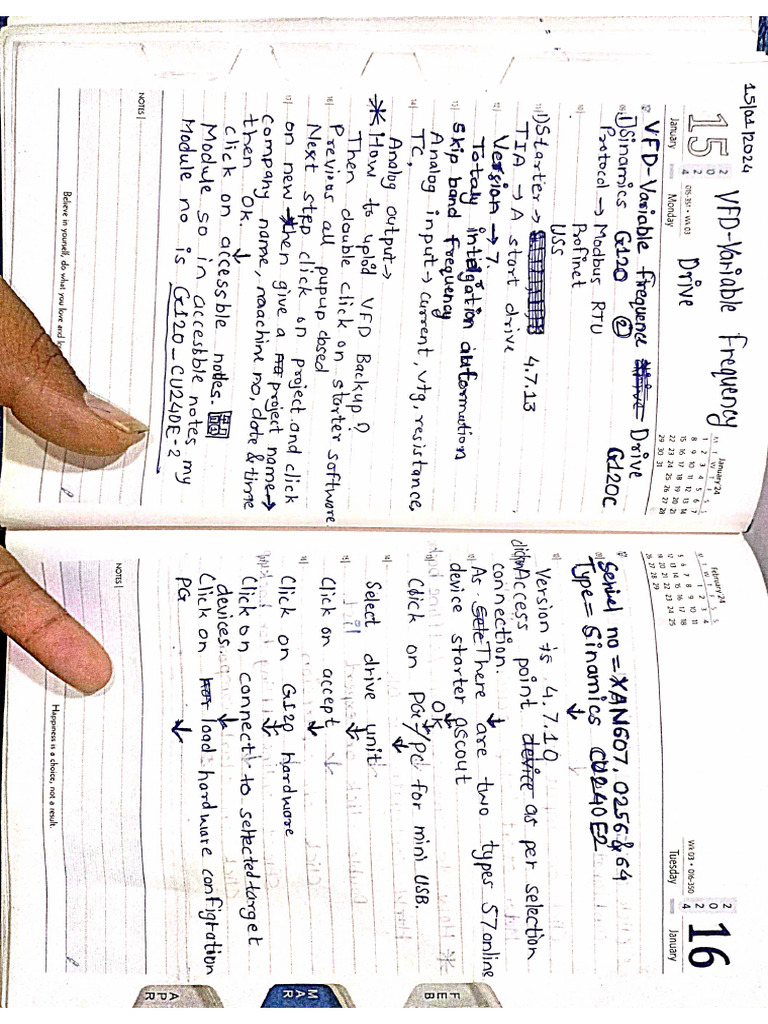 15/01/2024
15
January
2
0
2
4
015-351 • Wk 03
Monday
VFD-Variable Frequency
Drive
January'24
M T W T F S S
1 2 3 4 5 6 7
8 9 10 11 12 13 14
15 16 17 18 19 20 21
22 23 24 25 26 27 28
29 30 31
VFD-Variable frequence Drive
1) Sinamics G120 ② G120C
Protocol → Modbus RTU
Profinet
USS
1) Starter → 4.7.13
TIA → A start drive
Version → 7
Totaly intigration automation
Skip band frequency
Analog input → current, vtg, resistance,
TC,
Analog output →
* How to uplod VFD Backup?
Then double click on starter software
Previous all pupup closed
Next step click on project and click
on new → then give a project name →
company name, maachine no, date & time
then ok. ↓
click on accessble notes.
Module so in accesbble notes my
Module no is G120_CU240E-2
NOTES
Believe in yourself, do what you love and
February'24
M T W T F S S
1 2 3 4
5 6 7 8 9 10 11
12 13 14 15 16 17 18
19 20 21 22 23 24 25
26 27 28 29
Wk 03 • 016-350
Tuesday
2
0
2
4
16
January
Seriel no = XAN607, 0256 & 64
Type = Sinamics CU240E2
↓
Version is 4.7.10
Access point device as per selection
connection.
As There are two types S7online
device starter ascout
OK
Click on PG/PC for mini USB.
↓
Select drive unit
↓
Click on accept
↓
Click on G120 hardware
↓
Click on connect to selected target
devices.
↓
Click on load hardware configration
PG
↓
NOTES
Happiness is a choice, not a result.
FEB
MAR
APR